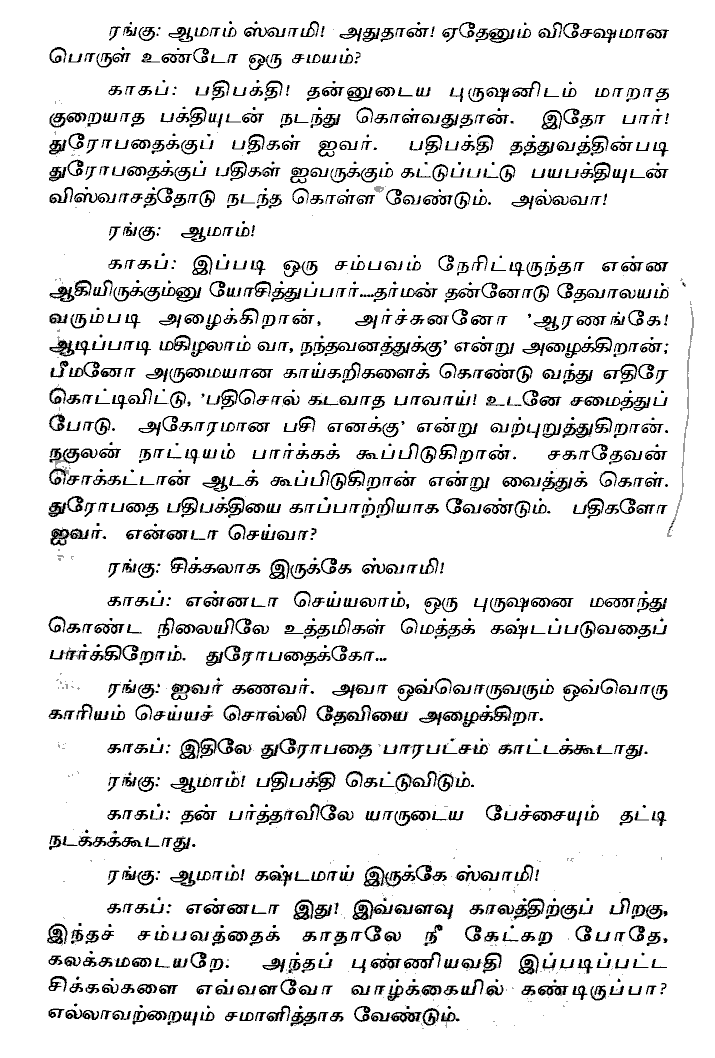 ரங்கு: ஆமாம் ஸ்வாமி! அதுதான்! ஏதேனும் விசேஷமான
பொருள் உண்டோ ஒரு சமயம்?
காகப்: பதிபக்தி! தன்னுடைய புருஷனிடம் மாறாத
குறையாத பக்தியுடன் நடந்து கொள்வதுதான். இதோ பார்!
துரோபதைக்குப் பதிகள் ஐவர். பதிபக்தி தத்துவத்தின்படி
துரோபதைக்குப் பதிகள் ஐவருக்கும் கட்டுப்பட்டு பயபக்தியுடன்
விஸ்வாசத்தோடு நடந்த கொள்ள வேண்டும். அல்லவா!
ரங்கு: ஆமாம்!
காகப்: இப்படி ஒரு சம்பவம் நேரிட்டிருந்தா என்ன
ஆகியிருக்கும்னு யோசித்துப்பார்....தர்மன் தன்னோடு தேவாலயம்
வரும்படி அழைக்கிறான், அர்ச்சுனனோ 'ஆரணங்கே!
ஆடிப்பாடி மகிழலாம் வா, நந்தவனத்துக்கு' என்று அழைக்கிறான்;
பீமனோ அருமையான காய்கறிகளைக் கொண்டு வந்து எதிரே
கொட்டிவிட்டு, 'பதிசொல் கடவாத பாவாய்! உடனே சமைத்துப்
போடு. அகோரமான பசி எனக்கு' என்று வற்புறுத்துகிறான்.
நகுலன் நாட்டியம் பார்க்கக் கூப்பிடுகிறான். சகாதேவன்
சொக்கட்டான் ஆடக் கூப்பிடுகிறான் என்று வைத்துக் கொள்.
துரோபதை பதிபக்தியை காப்பாற்றியாக வேண்டும். பதிகளோ
ஐவர். என்னடா செய்வா?
ரங்கு: சிக்கலாக இருக்கே ஸ்வாமி!
காகப்: என்னடா செய்யலாம், ஒரு புருஷனை மணந்து
கொண்ட நிலையிலே உத்தமிகள் மெத்தக் கஷ்டப்படுவதைப்
பார்க்கிறோம். துரோபதைக்கோ...
ரங்கு: ஐவர் கணவர். அவா ஒவ்வொருவரும் ஒவ்வொரு
காரியம் செய்யச் சொல்லி தேவியை அழைக்கிறா.
காகப்: இதிலே துரோபதை பாரபட்சம் காட்டக்கூடாது.
ரங்கு: ஆமாம்! பதிபக்தி கெட்டுவிடும்.
காகப்: தன் பர்த்தாவிலே யாருடைய பேச்சையும் தட்டி
நடக்கக்கூடாது.
ரங்கு: ஆமாம்! கஷ்டமாய் இருக்கே ஸ்வாமி!
காகப்: என்னடா இது! இவ்வளவு காலத்திற்குப் பிறகு,
இந்தச் சம்பவத்தைக் காதாலே நீ கேட்கற போதே,
கலக்கமடையறே. அந்தப் புண்ணியவதி இப்படிப்பட்ட
சிக்கல்களை எவ்வளவோ வாழ்க்கையில் கண்டிருப்பா?
எல்லாவற்றையும் சமாளித்தாக வேண்டும்.